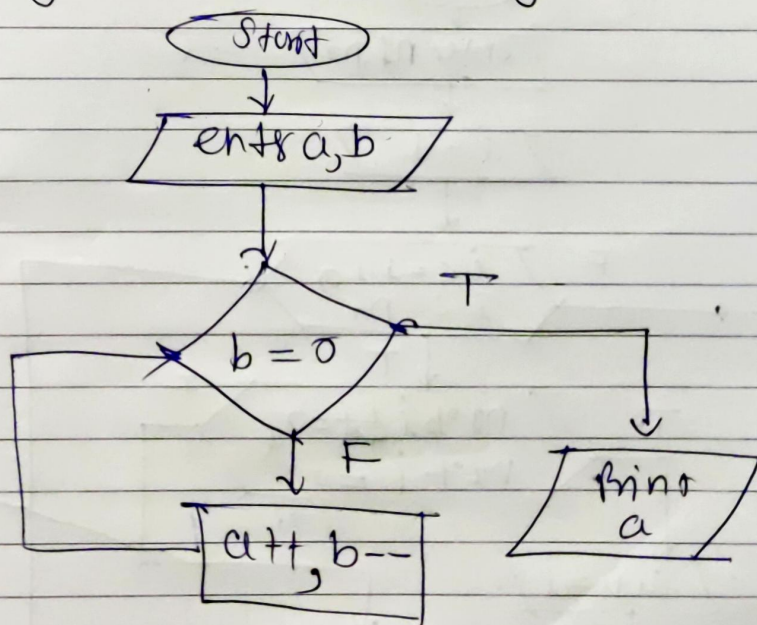 Start
enter a, b
T
b = 0
F
Print
a
a++, b--